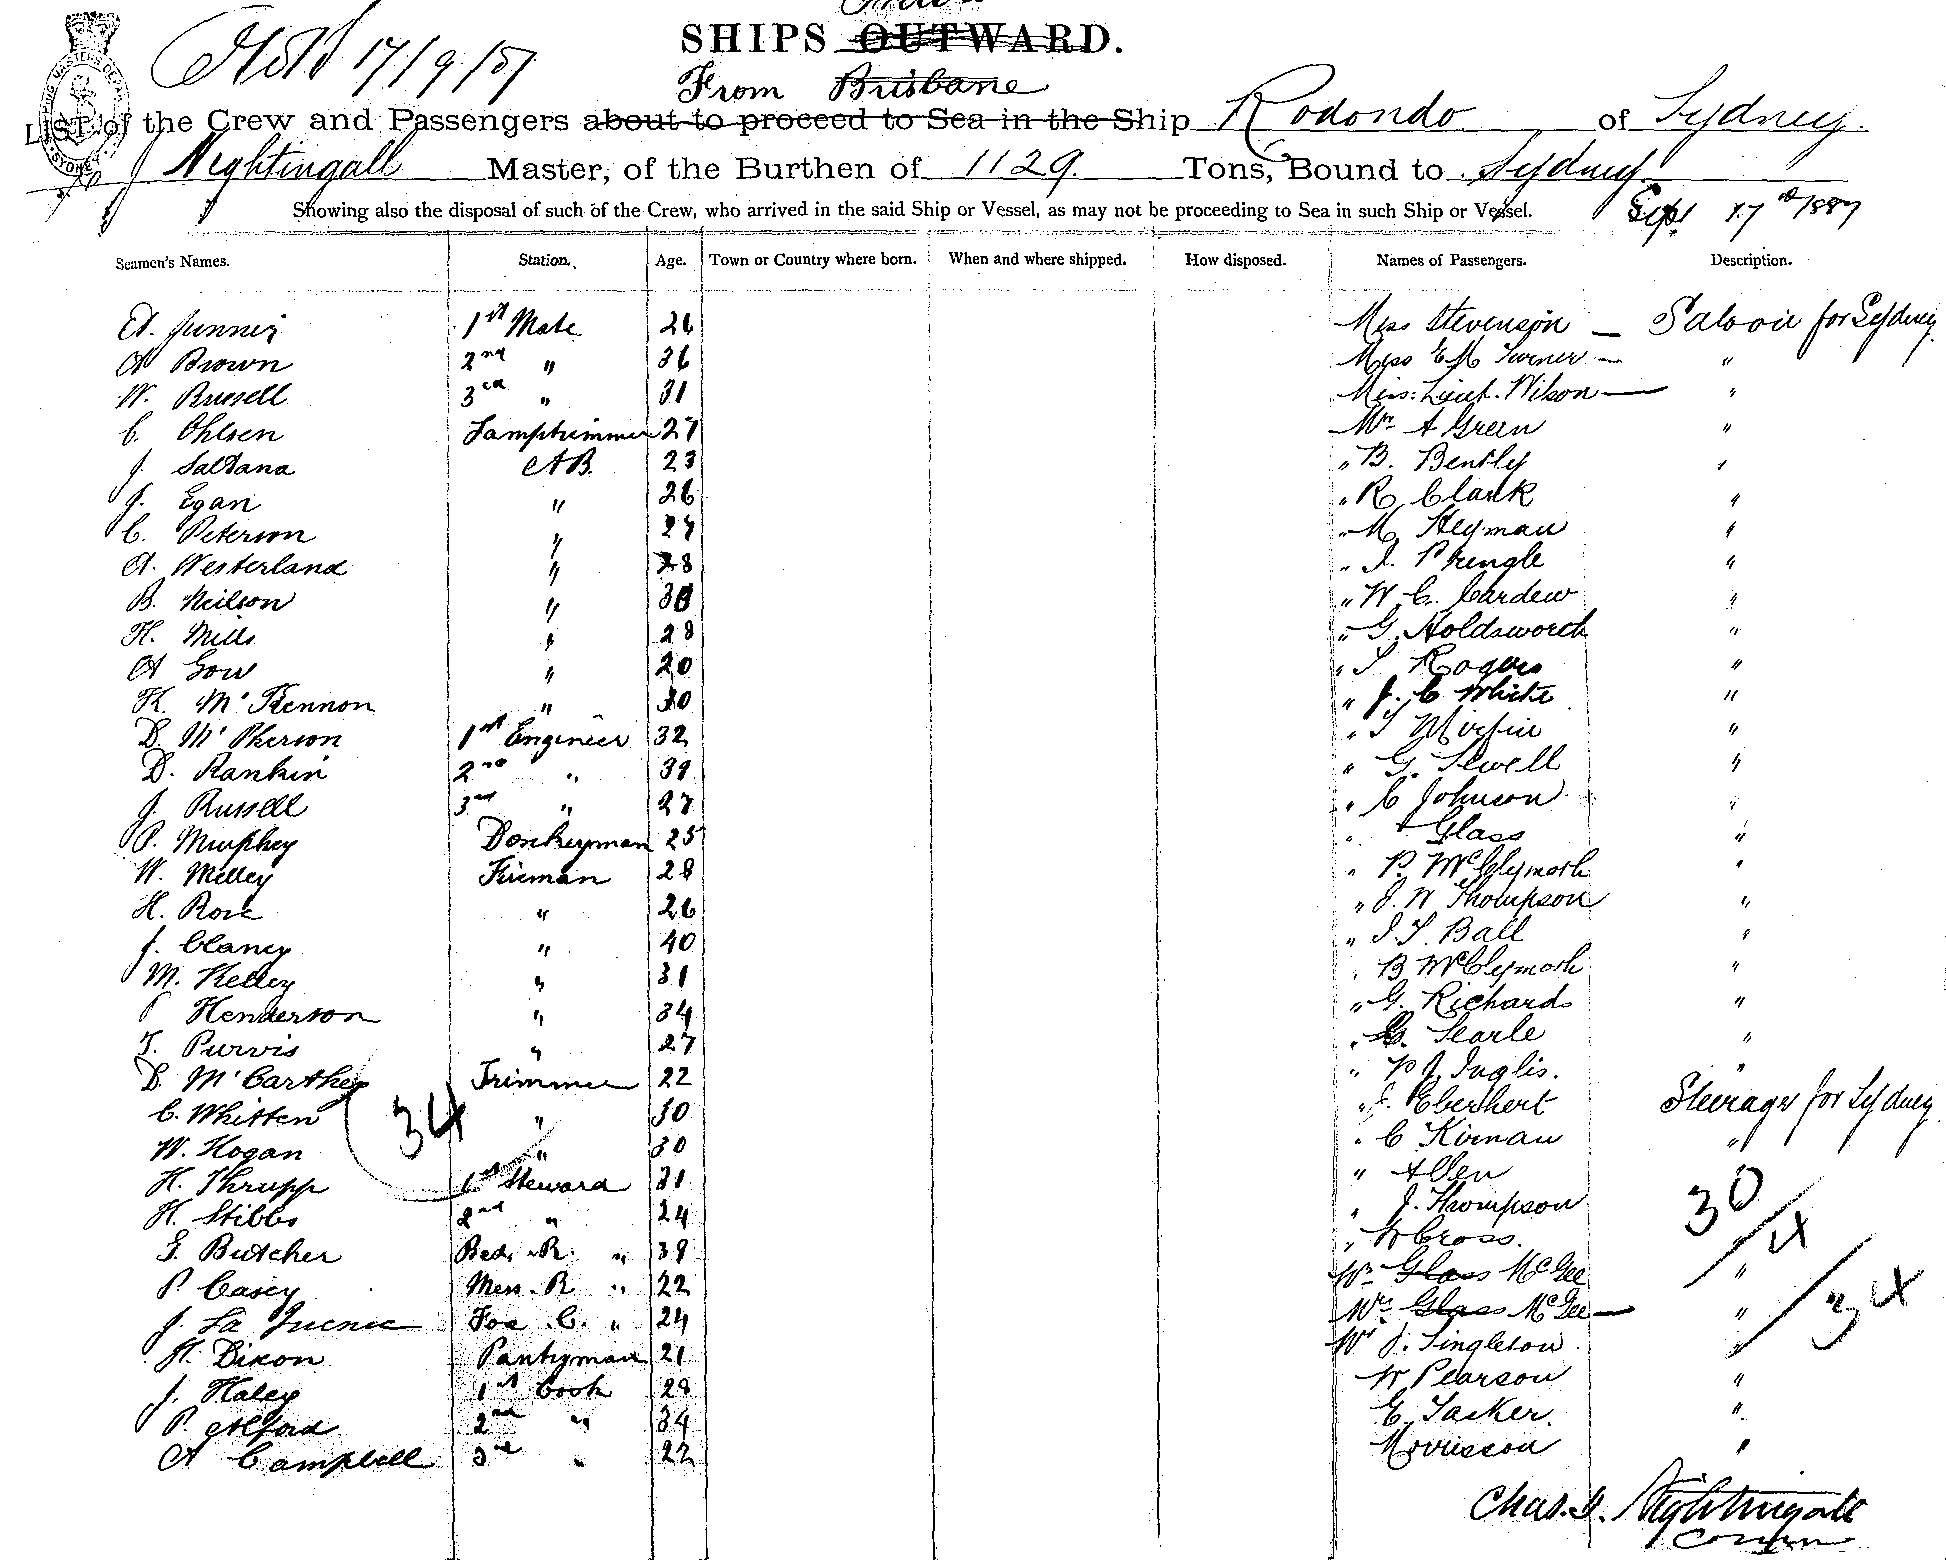 17/9/87
SHIPS OUTWARD.
From Brisbane
LIST of the Crew and Passengers about to proceed to Sea in the Ship Rodondo of Sydney.
J Nightingall Master, of the Burthen of 1129. Tons, Bound to Sydney
Showing also the disposal of such of the Crew, who arrived in the said Ship or Vessel, as may not be proceeding to Sea in such Ship or Vessel. Sept 17th 1887
Seamen's Names. Station. Age. Town or Country where born. When and where shipped. How disposed. Names of Passengers. Description.
1st Mate 26 Miss Stevenson — Saloon for Sydney
A Brown 2nd " 36 Miss E M Turner — "
W. Russell 3rd " 31 Wilson — "
C. Ohlsen Lamptrimmer 27 Mr A Green "
J. Saldana AB. 23 " B. Bently "
J. Egan " 26 " R Clark "
C. Peterson " 27 " M Heyman "
A. Westerland " 28 " J. Pringle "
B. Neilson " 30 " W. C. Cardew "
H. Mills " 28 " G. Holdsworth "
A Gow " 20 " S Rogers "
K. McKennon " 30 " J. C White "
D. McPherson 1st Engineer 32 " T Mirfin "
D. Rankin 2nd " 39 " G. Sewell "
J. Russell 3rd " 27 " C Johnson "
P. Murphey Donkeyman 25 " Glass "
W. Milley Fireman 28 " P. McClymoth "
H. Rose " 26 " J. W Thompson "
J. Clancy " 40 " J. T. Ball "
M. Kelley " 31 " B McClymoth "
Henderson " 34 " G. Richards "
T. Purvis " 27 " G. Searle "
D. McCarthey Trimmer 22 " Inglis. "
C. Whitten " 30 " J. Eberhert Steerage for Sydney
34
W. Hogan " 30 " C Kirnan "
H. Thrupp 1st Steward 31 " Allen
H. Stibbs 2nd " 24 " J. Thompson 30
G. Butcher Bed. R. " 39 " W Cross. " /4
P. Casey Mess. R " 22 Mr Glass McGee "
J. La Fore. C. " 24 Mrs Glass McGee — " /34
H. Dixon Pantryman 21 Mr J. Singleton "
J. Haley 1st Cook 29 W Pearson "
P. Alford 2nd " 34 E. Tasker. "
A Campbell 3rd " 22 Morrisson "
Chas. G. Nightingale